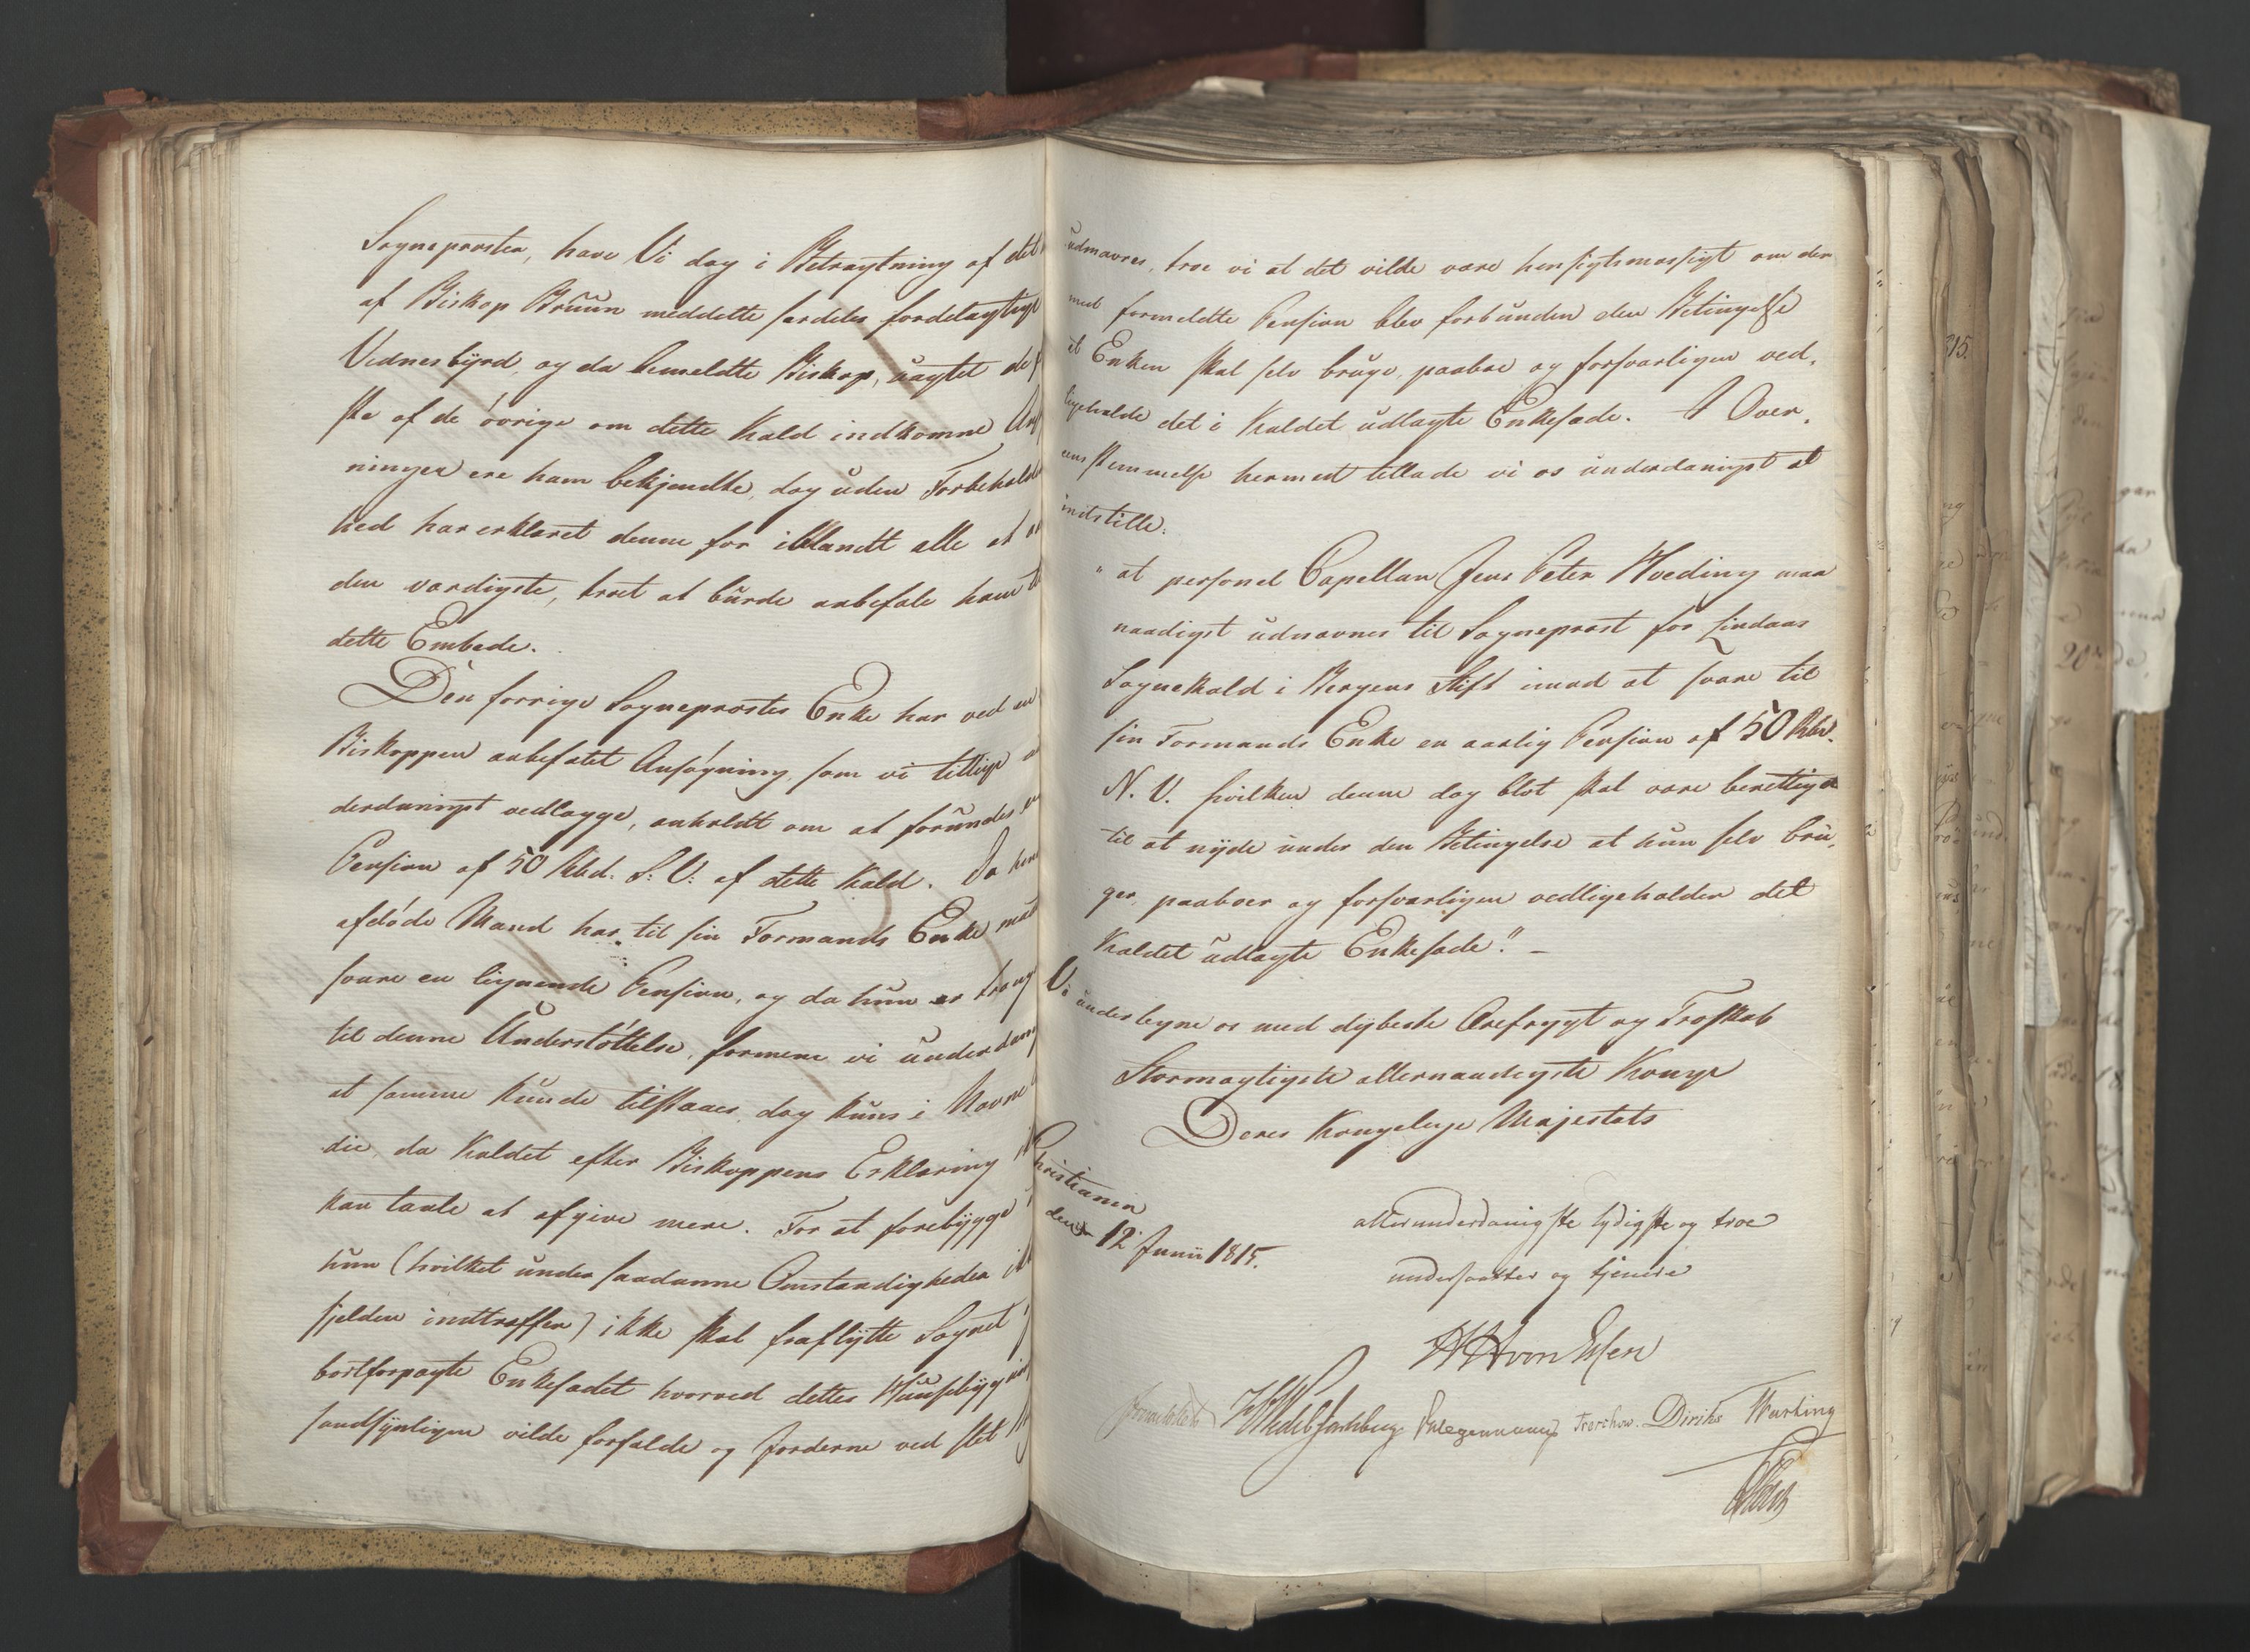 Sognepræster, have Vi dog i Betragtning af det
af Biskop Bruun meddeelte særdeles fordelagtige
Vidnesbyrd, og da bemeldte Biskop, uagtet de
ste af de øvrige om dette Kald indkomne Ans
ninger ere ham bekjendte, dog uden Forbeholden
hed har erklæret denne for iblandt alle at
den værdigste, troet at burde anbefale ham
dette Embede.
Den forrige Sognepræstes Enke har ved en
Biskoppen anbefalet Ansøgning, som vi tillige
derdanigst vedlægge, anholdt om at forundes
Pension af 50 Rbd. S: V: af dette Kald. Da
afdøde Mand har til sin Formands Enke
svare en lignende Pension, og da hun er trang
til denne Understøttelse, formene vi underdan
at samme kunde tilstaaes dog kuns i Navne
die, da Kaldet efter Biskoppens Erklæring
kan taale at afgive mere. For at forebygge
hun (hvilket under saadanne Omstændigheder
sjelden indtræffer) ikke skal fraflytte Sognet
bortforpagte Enkesædet hvorved dettes Huusbygnin
sandsynligen vilde forfalde og Jorderne ved slet
udmavres, troe vi at det vilde være hensigtsmæssigt om der
med formeldte Pension blev forbunden den Betingelse
at Enken skal selv bruge, paaboe og forsvarligen ved,
ligeholde det i Kaldet udlagte Enkesæde. I Over,
eensstemmelse hermed tillade vi os underdanigst at
indstille:
"at personel Capellan Jens Peter Hveding maa
naadigst udnævnes til Sognepræst for Lindaas
Sognekald i Bergens Stift imod at svare til
sin Formands Enke en aarlig Pension af 50 Rbd.
N. V. hvilken denne dog blot skal være berettiget
til at nyde under den Betingelse at hun selv bru,
ger, paaboer og forsvarligen vedligeholder det
Kaldet udlagte Enkesæde." –
Vi undertegne os med dybeste Ærefrygt og Troskab
Stormægtigste allernaadigste Konge
Deres Kongelige Majestæts
Christiania
den 12 Junii 1815.
allerunderdanigste lydigste og troe
undersaatter og tjenere
HHvon Essen
Sommerhielm HWedel Jarlsberg Hegermann Treschow. Diriks Werring